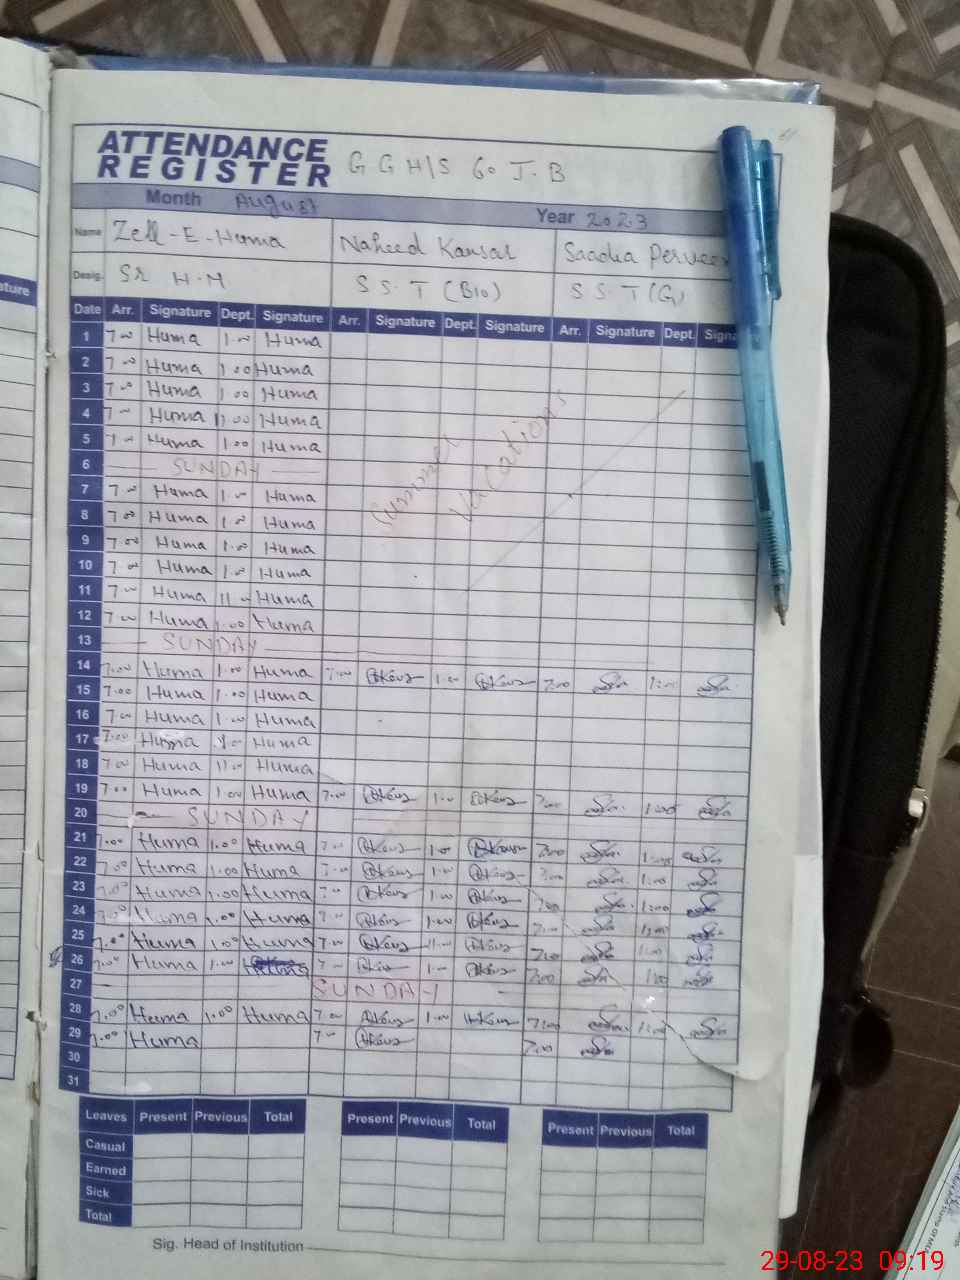 ATTENDANCE REGISTER G G H/S 60 J.B
Month August Year 2023
Name Zell-E-Huma Naheed Kausar Saadia Perveen
Desig. Sr H.M S S.T (Bio) S S.T (G)
Date Arr. Signature Dept. Signature Arr. Signature Dept. Signature Arr. Signature Dept.
1 7.00 Huma 1.00 Huma
2 7.00 Huma 1.00 Huma
3 7.00 Huma 1.00 Huma
4 Huma 11.00 Huma
5 Huma 1.00 Huma
6 SUNDAY
Summer Vacations
7 7.00 Huma 1.00 Huma
8 7.00 Huma 1.00 Huma
9 7.00 Huma 1.00 Huma
10 7.00 Huma 1.00 Huma
11 7.00 Huma 11.00 Huma
12 7.00 Huma 1.00 Huma
13 SUNDAY
14 7.00 Huma 1.00 Huma 7.00 1.00 7.00 1.00
15 7.00 Huma 1.00 Huma
16 7.00 Huma 1.00 Huma
17 7.00 Huma 1.00 Huma
18 7.00 Huma 11.00 Huma
19 7.00 Huma 1.00 Huma 7.00 1.00 7.00 1.00
20 SUNDAY
21 7.00 Huma 1.00 Huma 7.00 1.00 7.00
22 7.00 Huma 1.00 Huma 7.00 1.00 7.00 1.00
23 7.00 Huma 1.00 Huma 1.00 7.00 1.00
24 7.00 Huma 1.00 Huma 7.00 1.00 7.00 1.00
25 7.00 Huma 1.00 Huma 7.00 11.00 7.00 1.00
26 7.00 Huma 1.00 7.00 1.00 7.00 1.00
27 SUNDAY
28 7.00 Huma 1.00 Huma 7.00 1.00 7.00 1.00
29 7.00 Huma 7.00 7.00
30
31
Leaves Present Previous Total Present Previous Total Present Previous Total
Casual
Earned
Sick
Total
Sig. Head of Institution
29-08-23 09:19